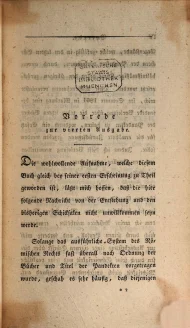 STAATS
BIBLIOTHEK
MUENCHEN
Vorrede
zur vierten Ausgabe.
Die wohlwollende Aufnahme, welche diesem
Buch gleich bey seiner ersten Erscheinung zu Theil
geworden ist, läßt mich hoffen, daß die hier
folgende Nachricht von der Entstehung und den
bisherigen Schicksalen nicht unwillkommen seyn
werde.
Solange das ausführliche System des Rö-
mischen Rechts fast überall nach Ordnung der
Bücher und Titel der Pandekten vorgetragen
wurde, geschah es sehr häufig, daß diejenigen